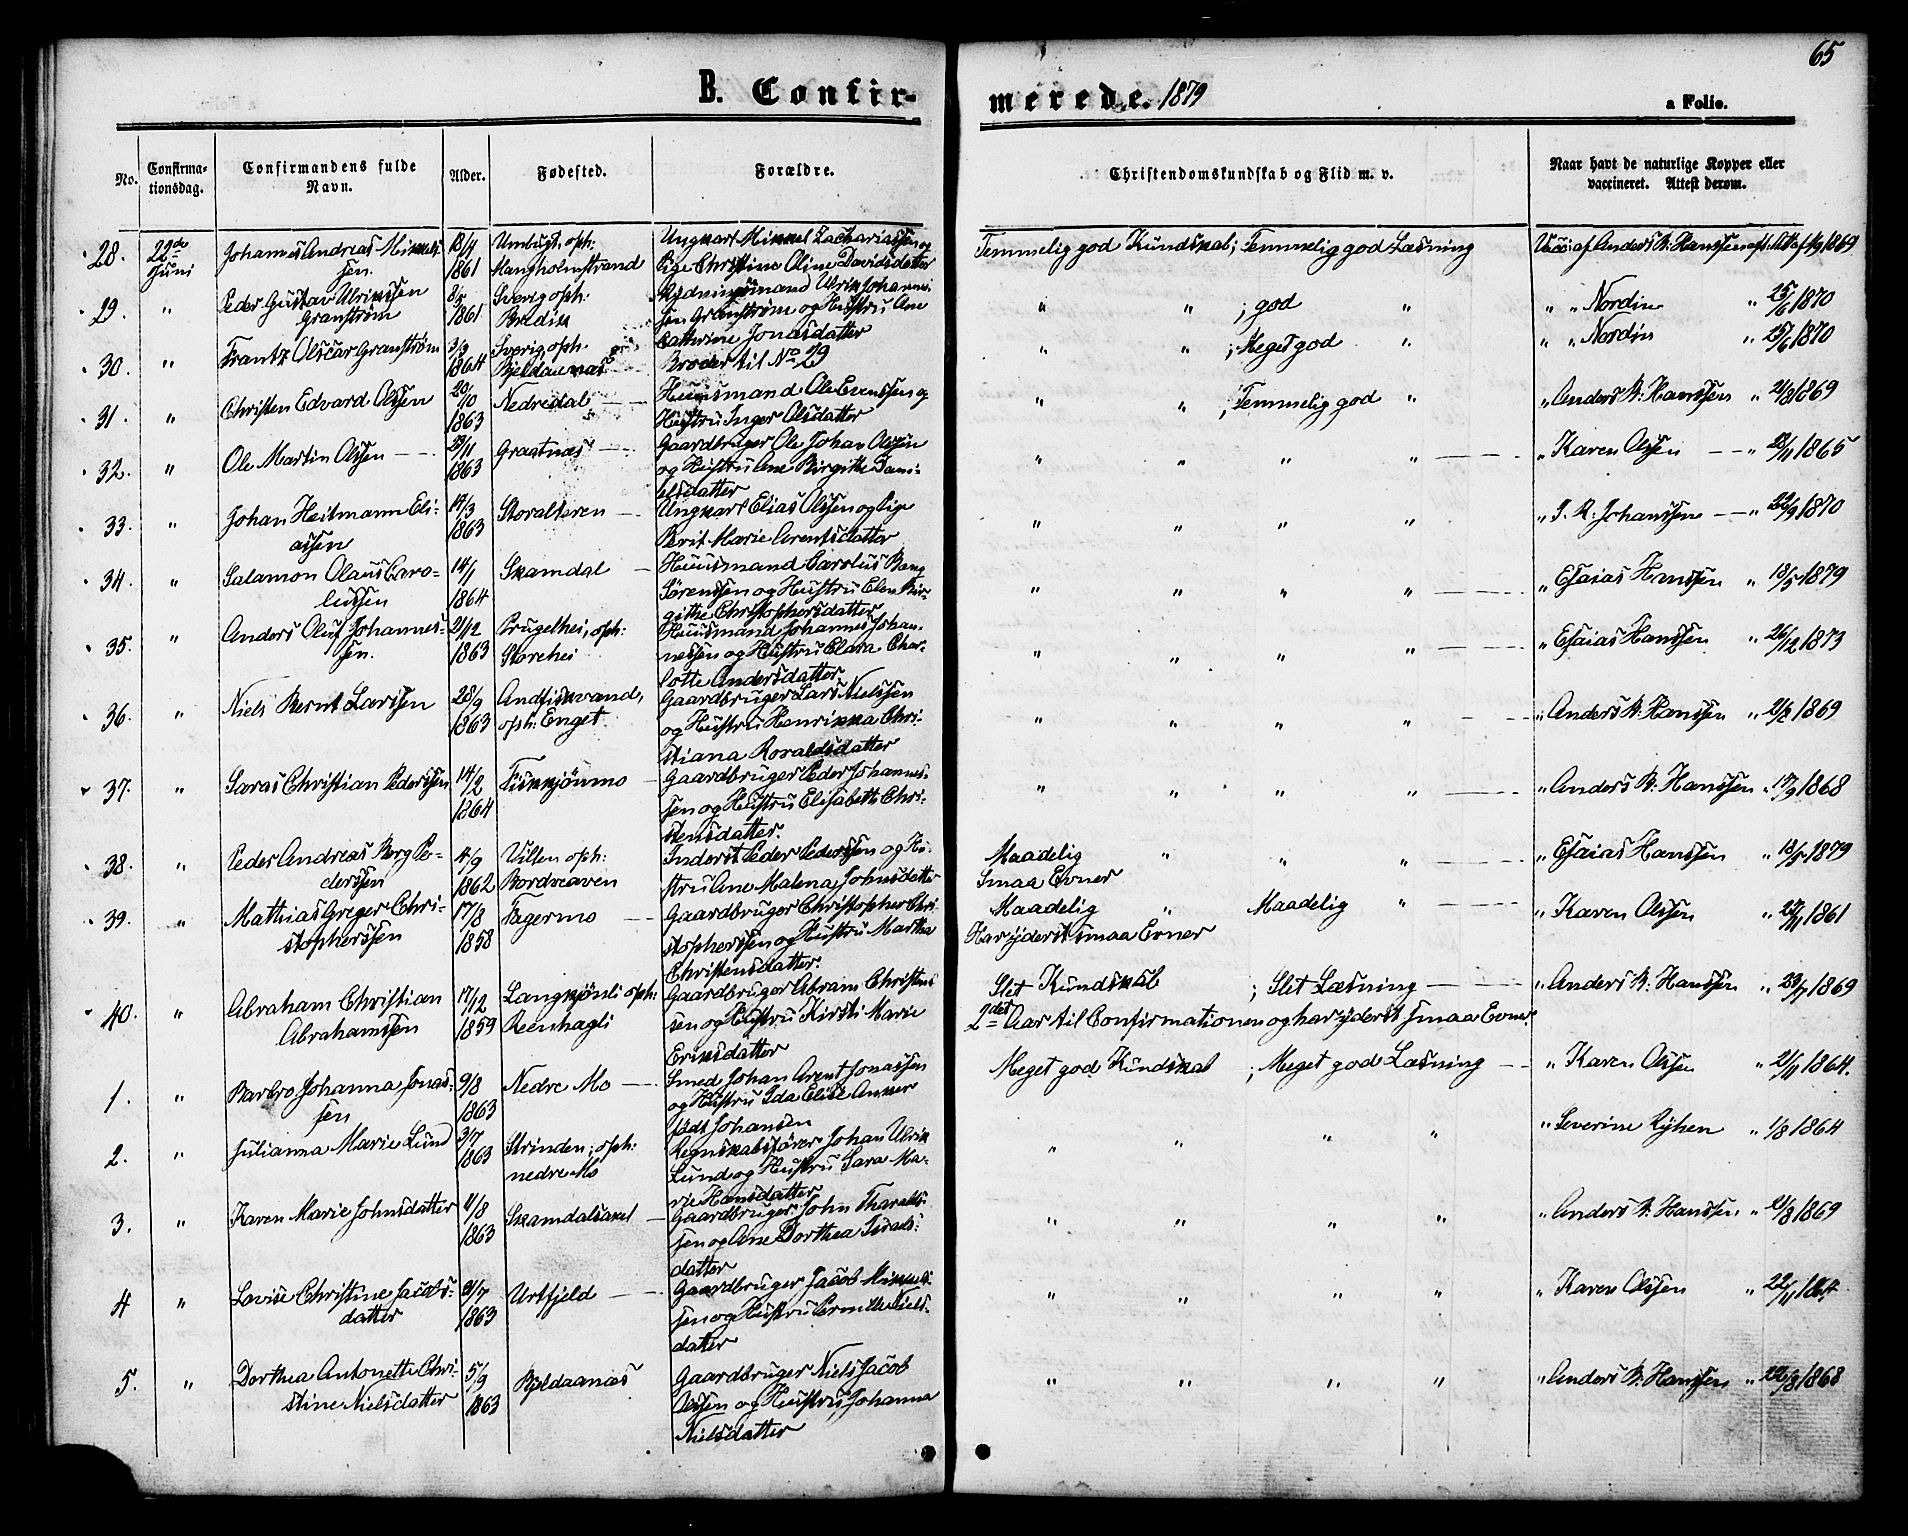 65
B. Confirmerede. 1879
a Folio.
No.
Confirmationsdag.
Confirmandens fulde Navn.
Alder.
Fødested.
Forældre.
Christendomskundskab og Flid m. v.
Naar havt de naturlige Kopper eller vaccineret. Attest derom.
28. 22de Juni
Johannes Andreas Mikkelssen.
1861
Umbugt, oph:
Mangholmstrand
Ungkarl Mikkel Zachariassen og
Pige Christine Oline Davidsdatter
Temmelig god Kundskab; Temmelig god Læsning
Vacc: af Anders B. Hanssen
29. "
Peder Gustav Ulrikssen
Granstrøm
1861
Sverig, oph:
Ulrik Johannessen Granstrøm og Hustru Ane
Cathrine Jonasdatter
" " ; god "
" " Nordin " 25/6 1870
30. "
Frantz Oscar Granstrøm
3/9 1864
Sverig, oph.
Bjeldaanæs
Broder til No 29
" " ; Meget god "
" " Nordin " 25/6 1870
31. "
Christen Edvard Olssen
20/10 1863
Nedredal
Huusmand Ole Evenssen og
Hustru Inger Olsdatter
" " ; Temmelig god "
" Anders B. Hanssen " 21/8 1869
32. "
Ole Martin Olssen
1863
Graatnæs
Gaardbruger Ole Johan Olssen
og Hustru Ane Birgitte Danielsdatter
" " " "
" Karen Olssen " 1865
33. "
Johan Heitmann Eliassen
1863
Storalteren
Ungkarl Elias Olssen og Pige
Berit Marie Arentsdatter
" " " "
" Johanssen " 1870
34. "
Salamon Olaus Carolussen
14/1 1864
Skamdal
Huusmand Carolus Bang
Sørenssen og Hustru Elen Birgithe Christophersdatter
" " " "
" Esaias Hanssen " 18/5 1879
35. "
Anders Oluf Johannessen.
21/12 1863
Brugelhei, oph:
Storehei
Huusmand Johannes Johannessen og Hustru Clara Charlotte Andersdatter
" " " "
" Esaias Hanssen " 26/12 1873
36. "
Niels Bernt Larssen
28/9 1863
Andfiskvand,
oph: Enget
Gaardbruger Lars Nielssen
og Hustru Henrikka Christiana Roraldsdatter
" " " "
" Anders B. Hanssen " 1869
37. "
Christian Pederssen
14/2 1864
Fiskkjønmo
Gaardbruger Peder Johannessen og Hustru Elisabeth Christensdatter.
" " " "
" Anders B. Hanssen " 17/9 1868
38. "
Peder Andreas Berg Pederssen
4/9 1862
Villen oph:
Bordveaven
Inderst Peder Pederssen og Hustru Ane Malena Johnsdatter
Maadelig " " "
Smaa Evner
" Esaias Hanssen " 18/5 1879
39. "
Mathias Greger Christopherssen
17/8 1858
Fagermo
Gaardbruger Christopher Christopherssen og Hustru Martha
Christensdatter.
Maadelig " Maadelig "
Har yderst smaa Evner
" Karen Olssen " 1861
40. "
Abraham Christian
Abrahamssen
17/12 1859
Langkjønli oph:
Reenhagli
Gaardbruger Abram Christenssen og Hustru Kirsti Marie
Eriksdatter
Slet Kundskab ; Slet Læsning
2det Aar til Confirmationen og har yderst smaa Evner.
" Anders B. Hanssen " 1869
1. "
Barbro Johanna Jonassen
9/8 1863
Nedre Mo
Smed Johan Arent Jonassen
og Hustru Ida Elise Anker
født Johansen
Meget god Kundskab ; Meget god Læsning
" Karen Olssen " 21/11 1864.
2. "
Julianna Marie Lund
3/7 1863
Strinden; oph:
nedre Mo
Regnskabsfører Johan Ulrik
Lund og Hustru Sara Marie Hansdatter
" " " "
" Severine Ryhen " 1/8 1864
3. "
Karen Marie Johnsdatter
1863
Skamdalsaxel
Gaardbruger John Tharaldssen og Ane Dorthea datter
" " " "
" Anders B. Hanssen " 1869
4 "
Lovise Christine Jacobsdatter
1863
Urtfjeld
Gaardbruger Jacob Mikkelssen og Hustru Pernille Nielsdatter
" " " "
" Karen Olssen " 22/11 1864
5. "
Dorthea Antonette Christine Nielsdatter
5/9 1863
Bjeldaanæs
Gaardbruger Niels Jacob
Olssen og Hustru Johanna
Nielsdatter
" " " "
" Anders B. Hanssen " 1868